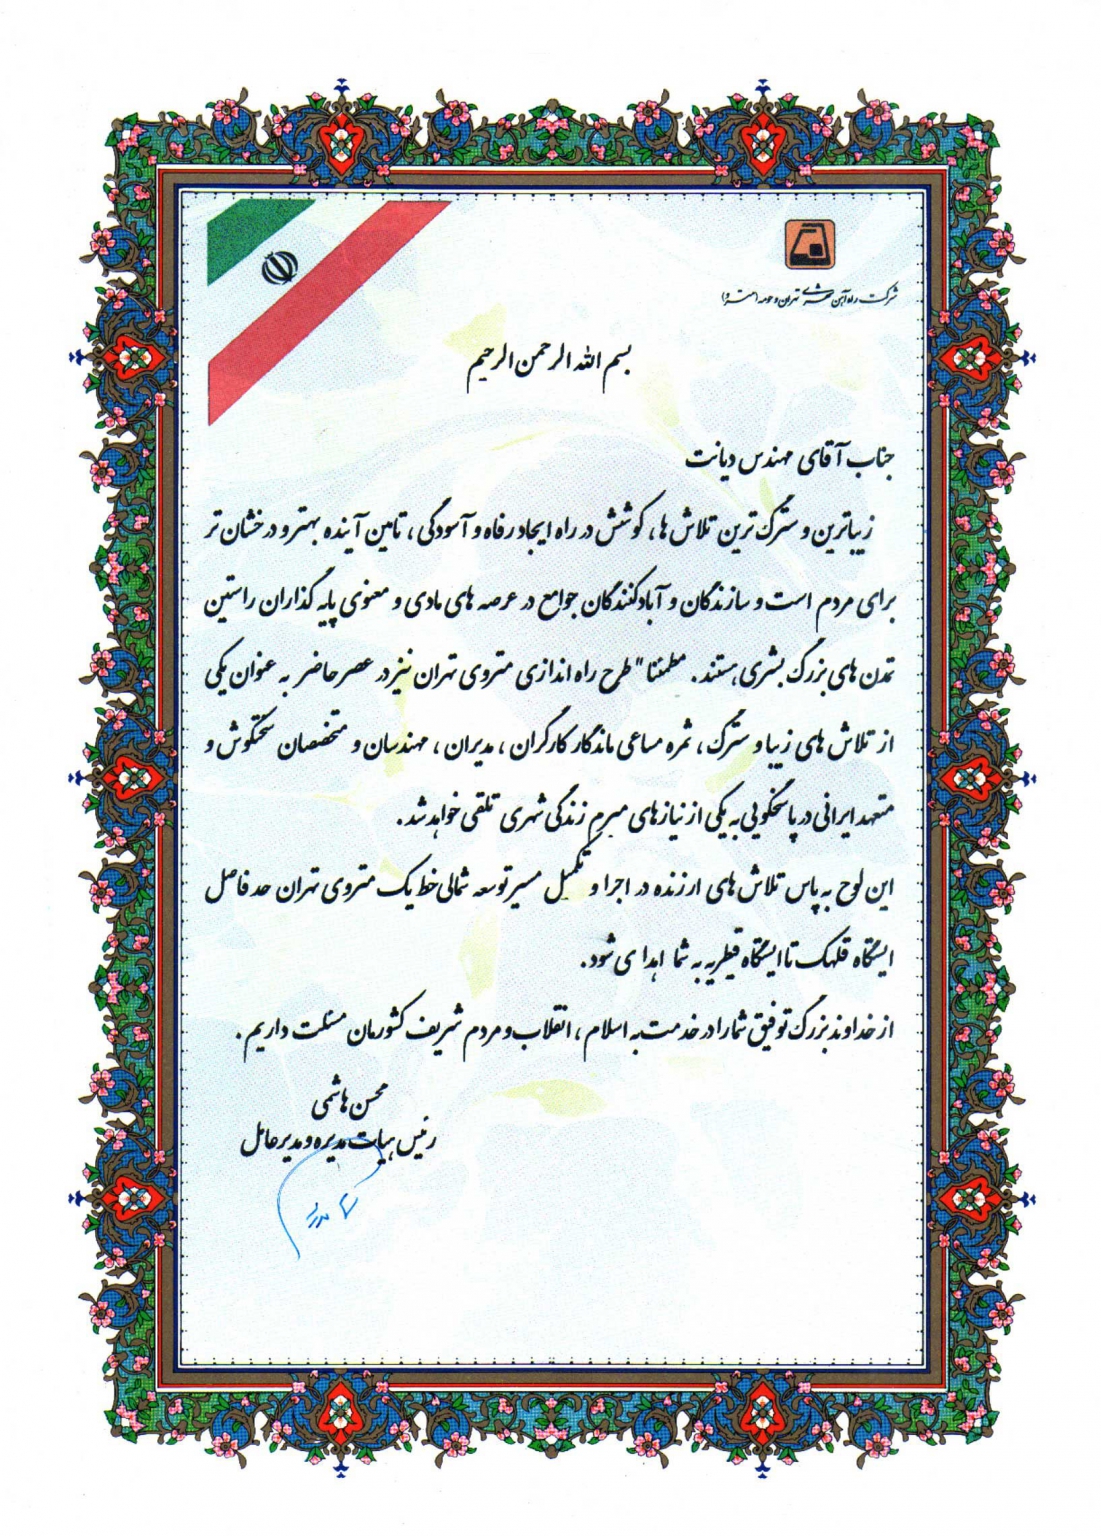 شرکت راه آهن شهری تهران و حومه (مترو)
بسم الله الرحمن الرحیم
جناب آقای مهندس دیانت
زیباترین و سترگ ترین تلاش ها، کوشش در راه ایجاد رفاه و آسودگی، تامین آینده بهتر و درخشان تر
برای مردم است و سازندگان و آبادکنندگان جوامع در عرصه های مادی و معنوی پایه گذاران راستین
تمدن های بزرگ بشری هستند. مطمئنا" طرح راه اندازی متروی تهران نیز در عصر حاضر به عنوان یکی
از تلاش های زیبا و سترگ، ثمره مساعی ماندگار کارگران، مدیران، مهندسان و متخصصان سختکوش و
متعهد ایرانی در پاسخگویی به یکی از نیازهای مبرم زندگی شهری تلقی خواهد شد.
این لوح به پاس تلاش های ارزنده در اجرا و تکمیل مسیر توسعه شمالی خط یک متروی تهران حد فاصل
ایستگاه قلهک تا ایستگاه قیطریه به شما اهدا می شود.
از خداوند بزرگ توفیق شما را در خدمت به اسلام، انقلاب و مردم شریف کشورمان مسئلت داریم.
محسن هاشمی
رئیس هیات مدیره و مدیرعامل